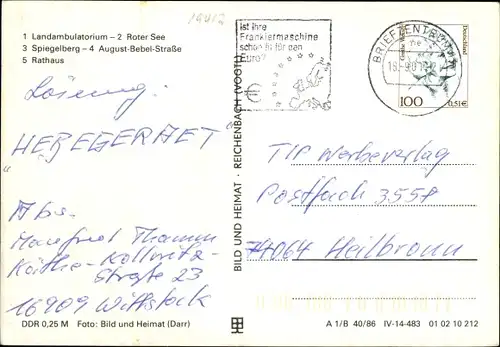 19412
1 Landambulatorium – 2 Roter See
3 Spiegelberg – 4 August-Bebel-Straße
5 Rathaus
Lösung:
"HEBEGERAET"
Abs.
Manfred Thamm
Käthe-Kollwitz-
Straße 23
16909 Wittstock
DDR 0,25 M Foto: Bild und Heimat (Darr)
BILD UND HEIMAT · REICHENBACH (VOGTL)
Ist Ihre
Frankiermaschine
schon fit für den
Euro?
€
BRIEFZENTRUM
Deutschland
100
0,51€
TIP Werbeverlag
Postfach 3558
74064 Heilbronn
A 1/B 40/86 IV-14-483 01 02 10 212